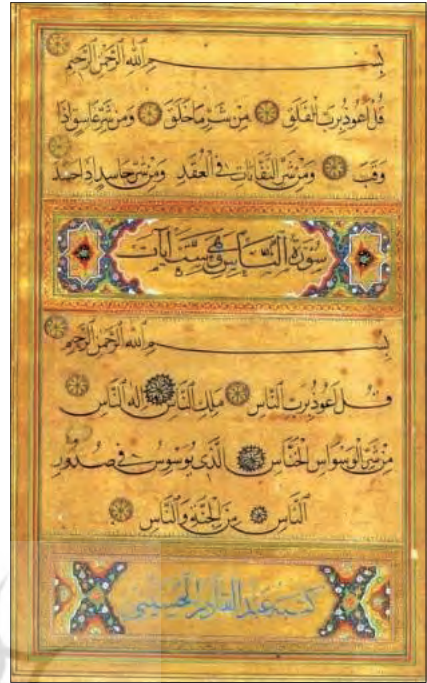 بسم الله الرحمن الرحيم
قل اعوذ برب الفلق من شر ما خلق ومن شر غاسق اذا
وقب ومن شر النفاثات في العقد ومن شر حاسد اذا حسد
سورة الناس وهي ست آيات
بسم الله الرحمن الرحيم
قل اعوذ برب الناس ملك الناس اله الناس
من شر الوسواس الخناس الذي يوسوس في صدور
الناس من الجنة والناس
كتبه عبد القادر الحسيني